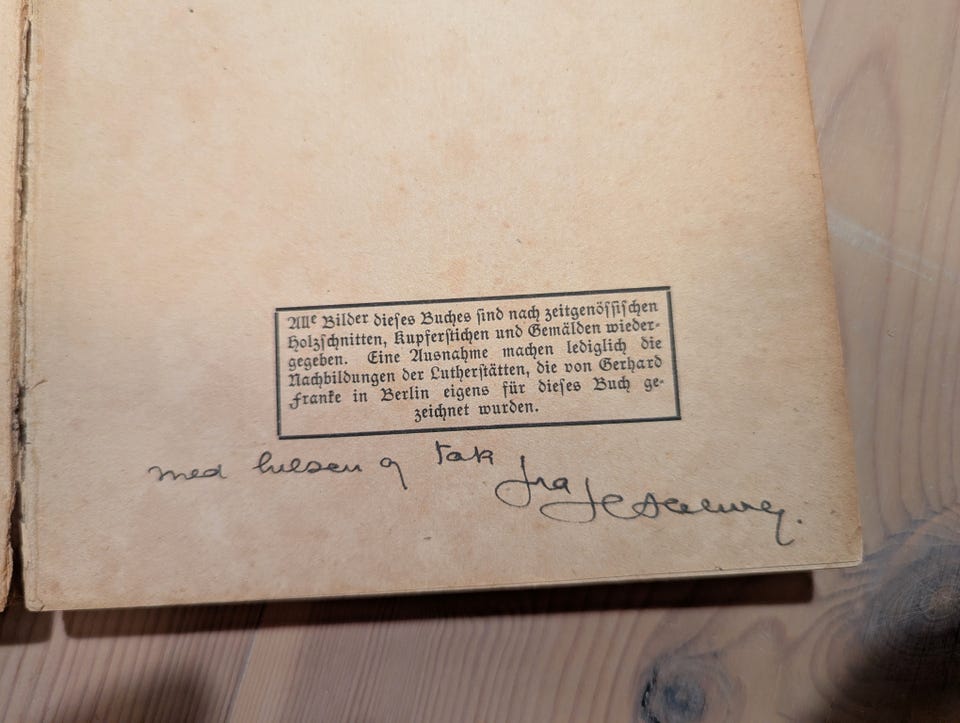 Alle Bilder dieses Buches sind nach zeitgenössischen
Holzschnitten, Kupferstichen und Gemälden wieder-
gegeben. Eine Ausnahme machen lediglich die
Nachbildungen der Lutherstätten, die von Gerhard
Franke in Berlin eigens für dieses Buch ge-
zeichnet wurden.
med hilsen og tak fra